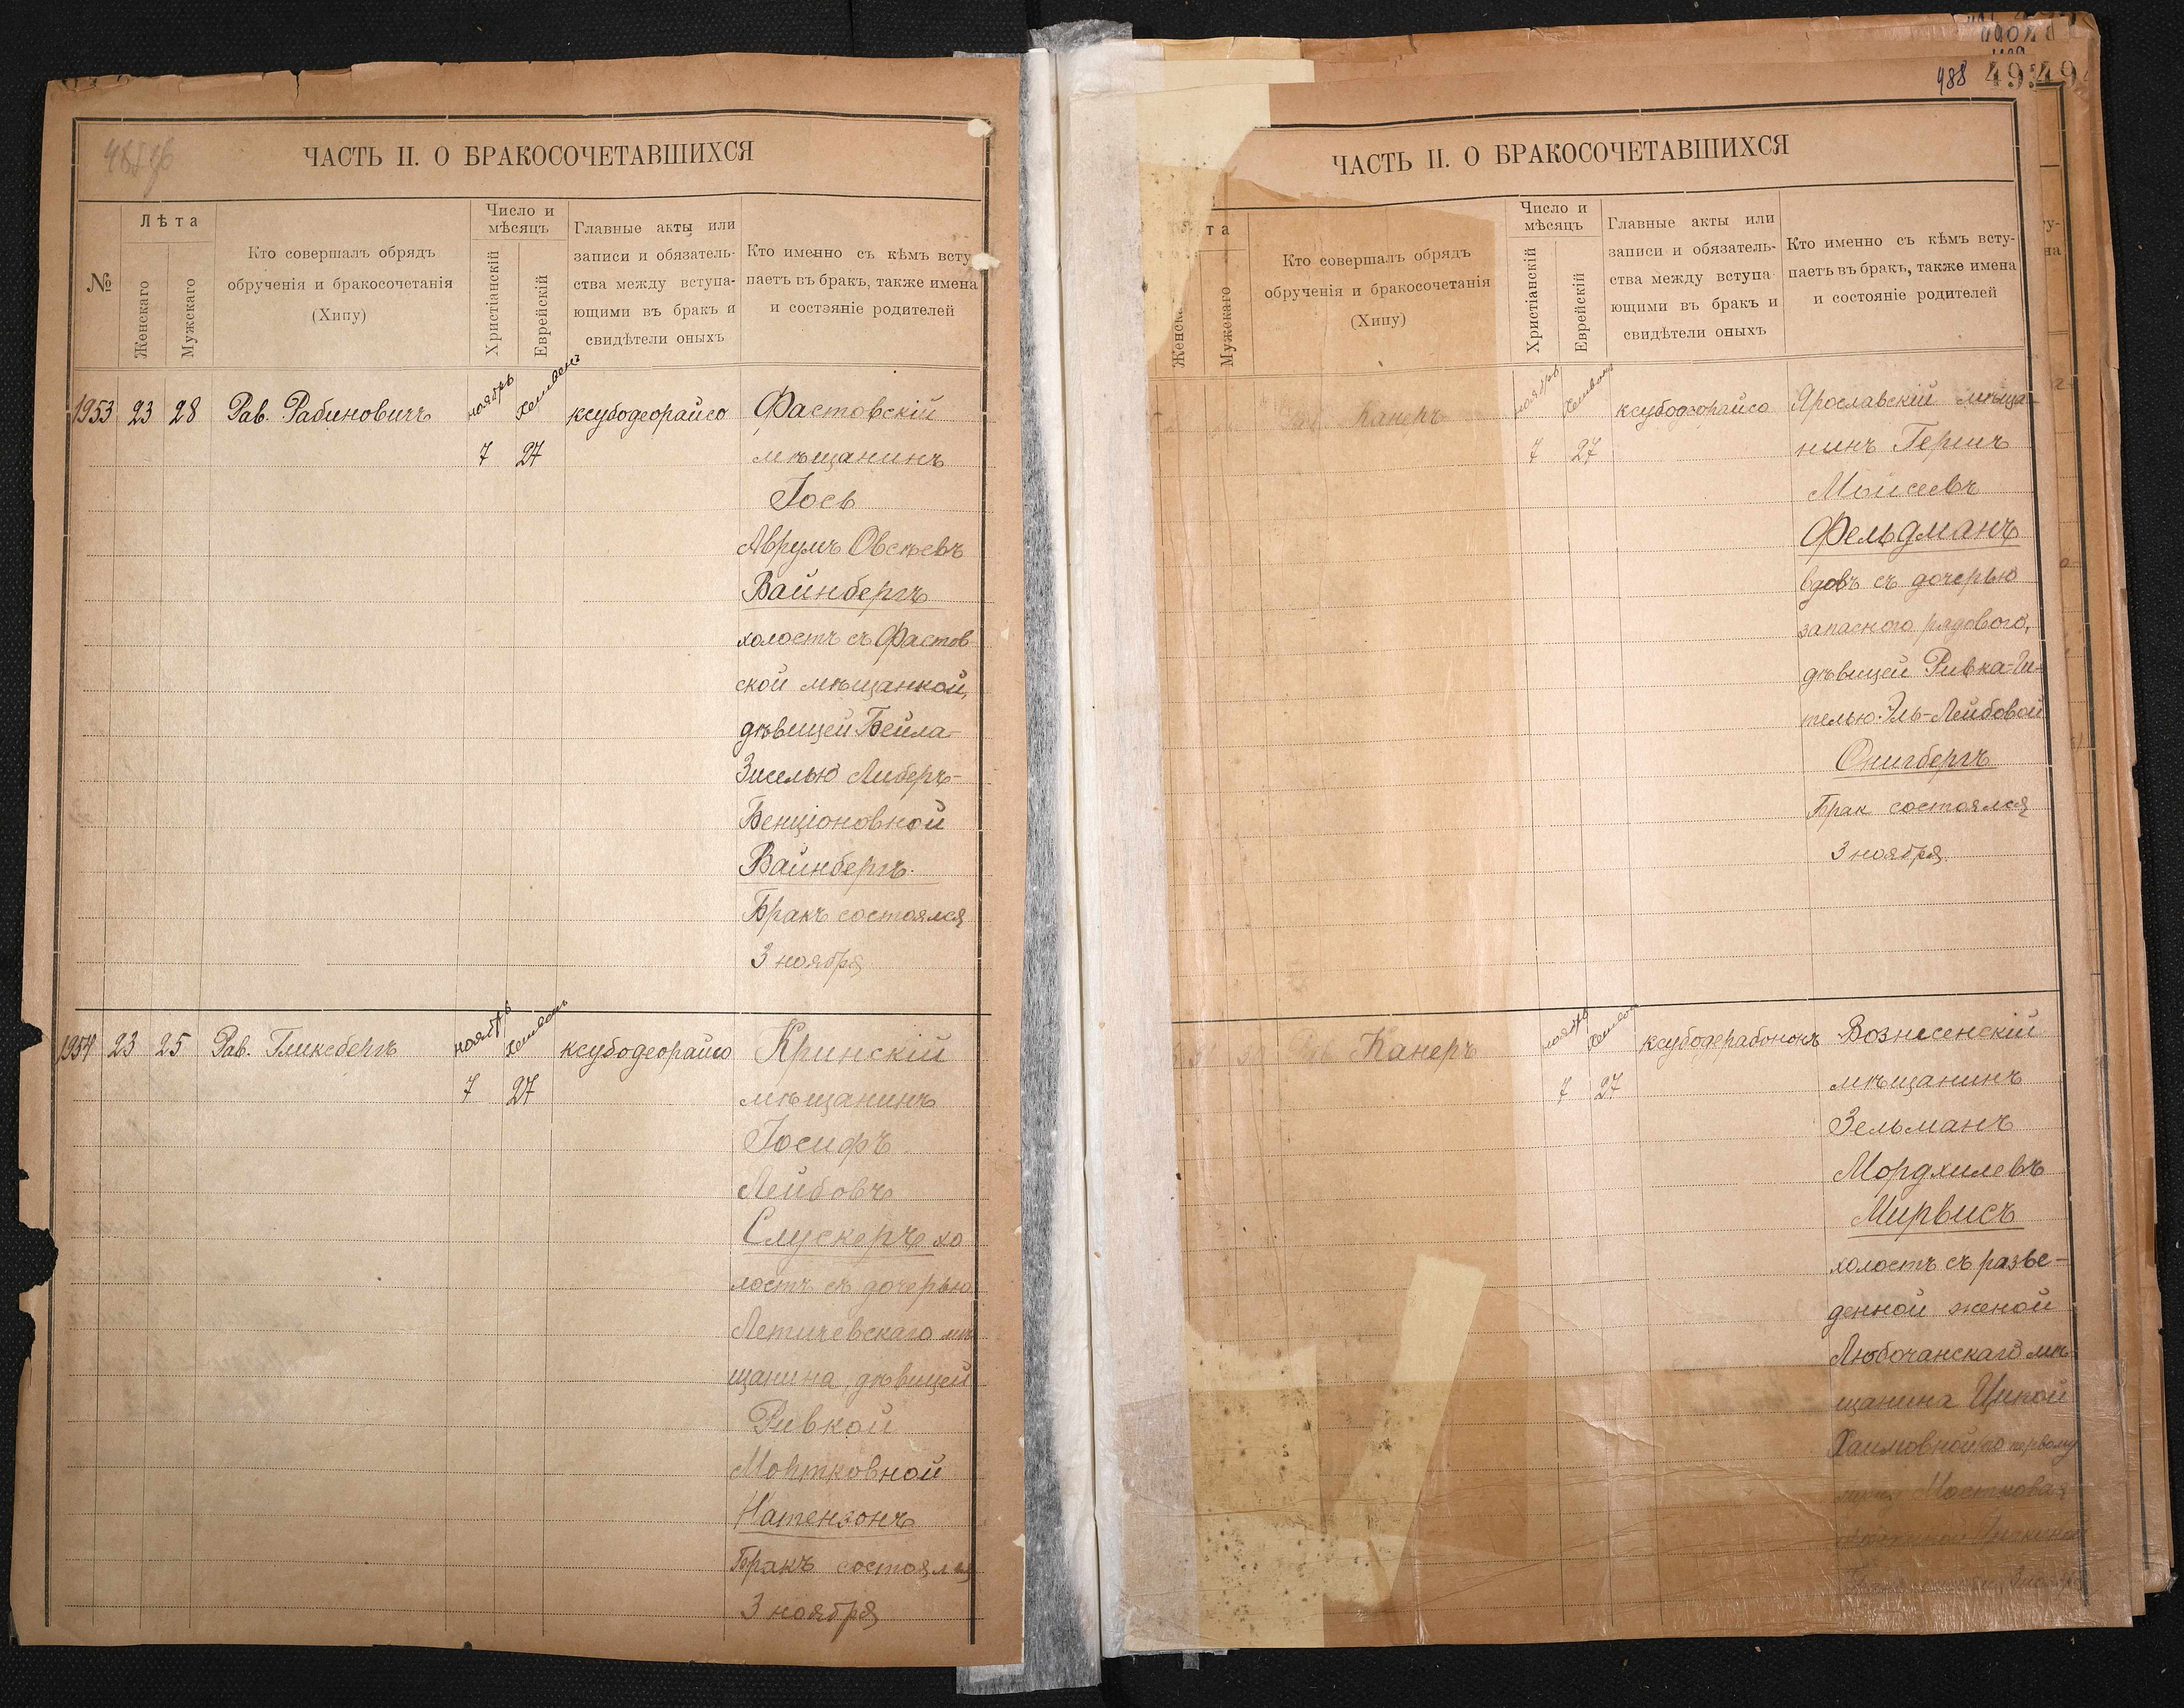 ЧАСТЬ II. О БРАКОСОЧЕТАВШИХСЯ
№
Лѣта
Женскаго
Мужскаго
Кто совершалъ обрядъ
обрученія и бракосочетанія
(Хипу)
Число и
мѣсяцъ
Христіанскій
Еврейскій
Главные акты или
записи и обязатель-
ства между вступа-
ющими въ бракъ и
свидѣтели оныхъ
Кто именно съ кѣмъ всту
паетъ въ бракъ, также имена
и состэяніе родителей
1953 23 28 Рав. Рабиновичъ ноябрь 7 Хешвонъ 27 ксубодеорайсо
Фастовскій
мѣщанинъ
Іось
Аврумъ Овсѣевъ
Вайнбергъ
холостъ съ Фастов
ской мѣщанкой,
дѣвицей Бейла-
Зиселью Либеръ-
Бенціоновной
Вайнбергъ.
Бракъ состоялся
3 ноября
1954 23 25 Рав. Гликсбергъ ноябрь 7 Хешвонъ 27 ксубодеорайсо
Кринскій
мѣщанинъ
Іосифъ
Лейбовъ
Слускеръ хо
лостъ съ дочерью
Летичевскаго мѣ
щанина дѣвицей
Ривкой
Мортковной
Натензонъ
Бракъ состоялся
3 ноября
488
ЧАСТЬ II. О БРАКОСОЧЕТАВШИХСЯ
та
Женска
Мужскаго
Кто совершалъ обрядъ
обрученія и бракосочетанія
(Хипу)
Число и
мѣсяцъ
Христіанскій
Еврейскій
Главные акты или
записи и обязатель-
ства между вступа
ющими въ бракъ и
свидѣтели оныхъ
Кто именно съ кѣмъ всту-
паетъ въ бракъ, также имена
и состояніе родителей
Рав. Канеръ ноябрь 7 Хешвонъ 27 ксубодеорайсо
Ярославскій мѣща-
нинъ Гершъ
Моисеевъ
Фельдманъ
вдовъ съ дочерью
запасного рядового,
дѣвицей Ривка-Ги-
телью Эль-Лейбовой
Онигбергъ
Брак состоялся
3 ноября.
30 Рав. Канеръ ноябрь 7 Хешвонъ 27 ксубодерабононъ
Вознесенскій
мѣщанинъ
Зельманъ
Мордхилевъ
Мирвисъ
холостъ съ разве-
денной женой
Любочанскаго мѣ-
щанина Ципой
Хаимовной, по первому